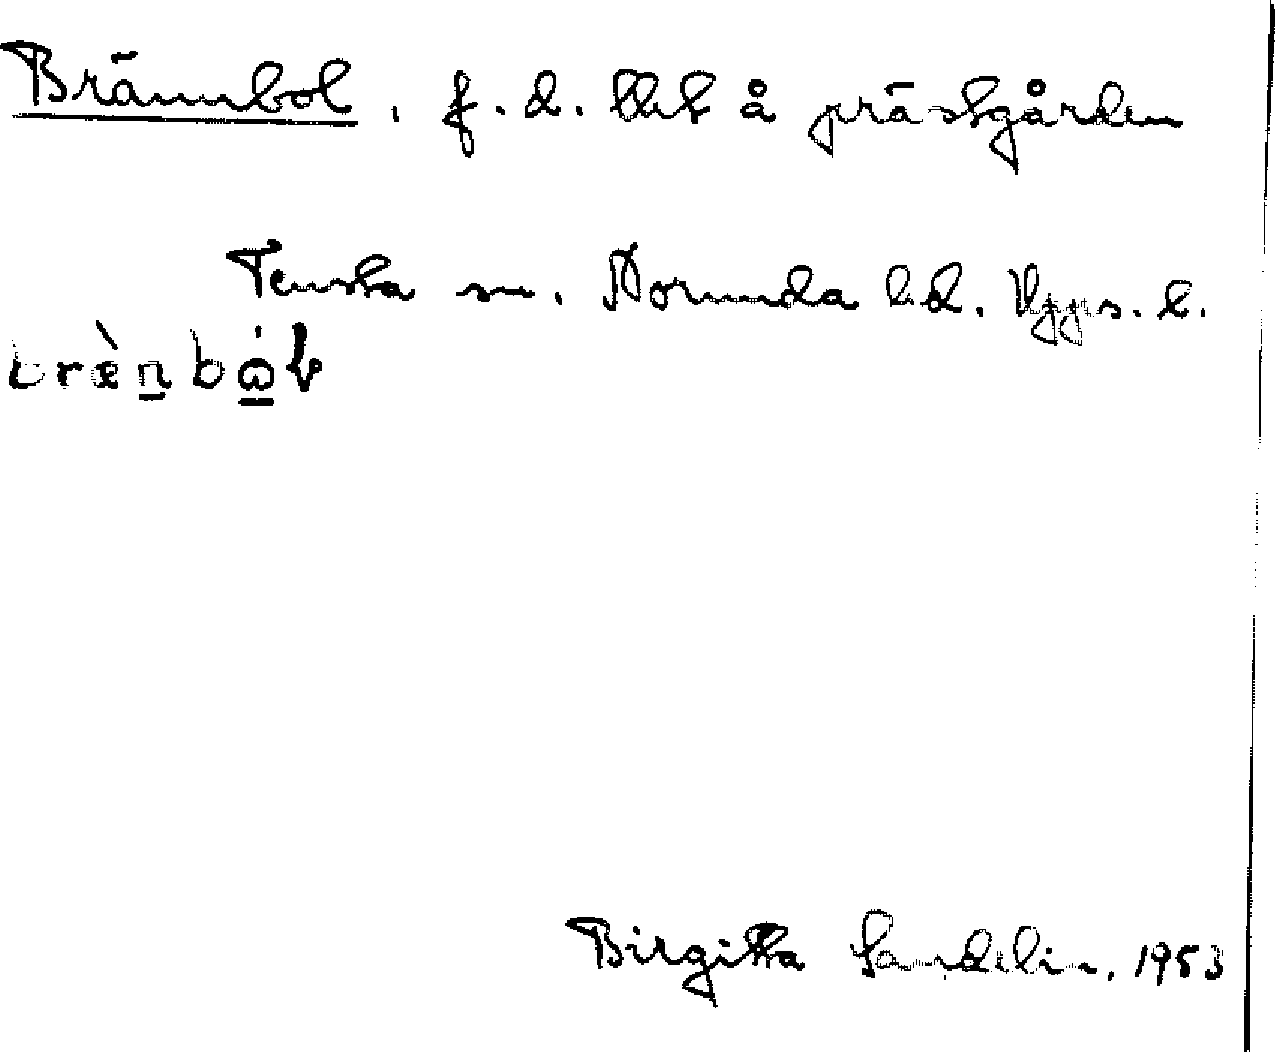 Brännbol, f.d. tbt å prästgården
Tensta sn. Norunda hd. Upps. l.
Birgitta Sandelin, 1953